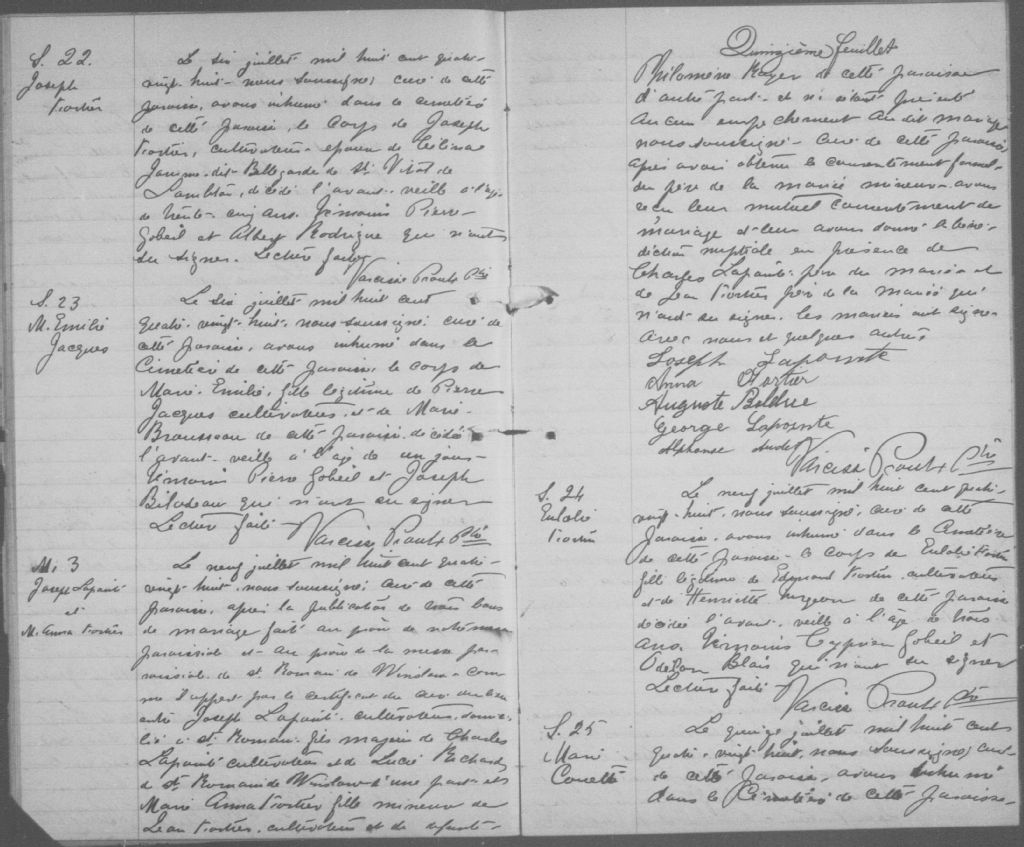 S. 22.
Joseph
Fortier
Le six juillet mil huit cent quatre-
vingt-huit - nous soussigné, curé de cette
paroisse, avons inhumé dans le cimetière
de cette paroisse, le corps de Joseph
Fortier, cultivateur - époux de Célina
dit Bellegarde de St. Vital de
Lambton, décédé l'avant-veille à l'age
de trente-cinq ans. Témoins Pierre
Gobeil et Albert Rodrigue qui n'ont
su signer. Lecture faite
Narcisse Proulx Ptre
S. 23
M. Emilie
Jacques
Le six juillet mil huit cent
quatre-vingt-huit - nous soussigné curé de
cette paroisse, avons inhumé dans le
Cimetière de cette paroisse, le corps de
Marie-Emilie, fille légitime de Pierre
Jacques cultivateur, et de Marie-
Brousseau de cette paroisse, décédée
l'avant-veille à l'age de un jour.
Témoins Pierre Gobeil et Joseph
Bilodeau qui n'ont su signer
Lecture faite
Narcisse Proulx Ptre
M. 3
Joseph Lapointe
et
M. Anna Fortier
Le neuf juillet mil huit cent quatre-
vingt-huit, nous soussigné curé de cette
paroisse, après la publication de trois bans
de mariage faite au prône de notre messe
paroissiale et au prône de la messe par-
oissiale de St. Romain de Winslow - com-
me il appert par le certificat du curé du lieu
entre Joseph Lapointe - cultivateur, domici-
lié à St. Romain - fils majeur de Charles
Lapointe cultivateur et de Lucie Bechard
de St. Romain de Winslow d'une part - et
Marie Anna Fortier fille mineure de
Jean Fortier, cultivateur et de défunte -
Quinzième feuillet
Philomène Royer de cette paroisse
d'autre part - et ne s'étant présenté
aucun empêchement au dit mariage
nous soussigné - curé de cette paroisse,
après avoir obtenu le consentement formel
du père de la mariée mineure - avons
reçu leur mutuel consentement de
mariage et leur avons donné la béné-
diction nuptiale en présence de
Charles Lapointe - père du marié et
de Jean Fortier père de la mariée qui
n'ont su signer. Les mariés ont signé
avec nous et quelques autres
Joseph Lapointe
Anna Fortier
Auguste Bolduc
George Lapointe
Alphonse Audet
Narcisse Proulx Ptre
S. 24
Eulalie
Fortier
Le neuf juillet mil huit cent quatre-
vingt-huit, nous soussigné, curé de cette
paroisse, avons inhumé dans le Cimetière
de cette paroisse - le corps de Eulalie Fortier
fille légitime de Edmond Fortier, cultivateur
et de Henriette Turgeon de cette paroisse
décédée l'avant-veille à l'âge de trois
ans. Témoins Cyprien Gobeil et
Odelon Blais qui n'ont su signer
Lecture faite
Narcisse Proulx Ptre
S. 25
Marie
Couette
Le quinze juillet mil huit cent
quatre-vingt-huit, nous soussigné, curé
de cette paroisse, avons inhumé
dans le Cimetière de cette paroisse -